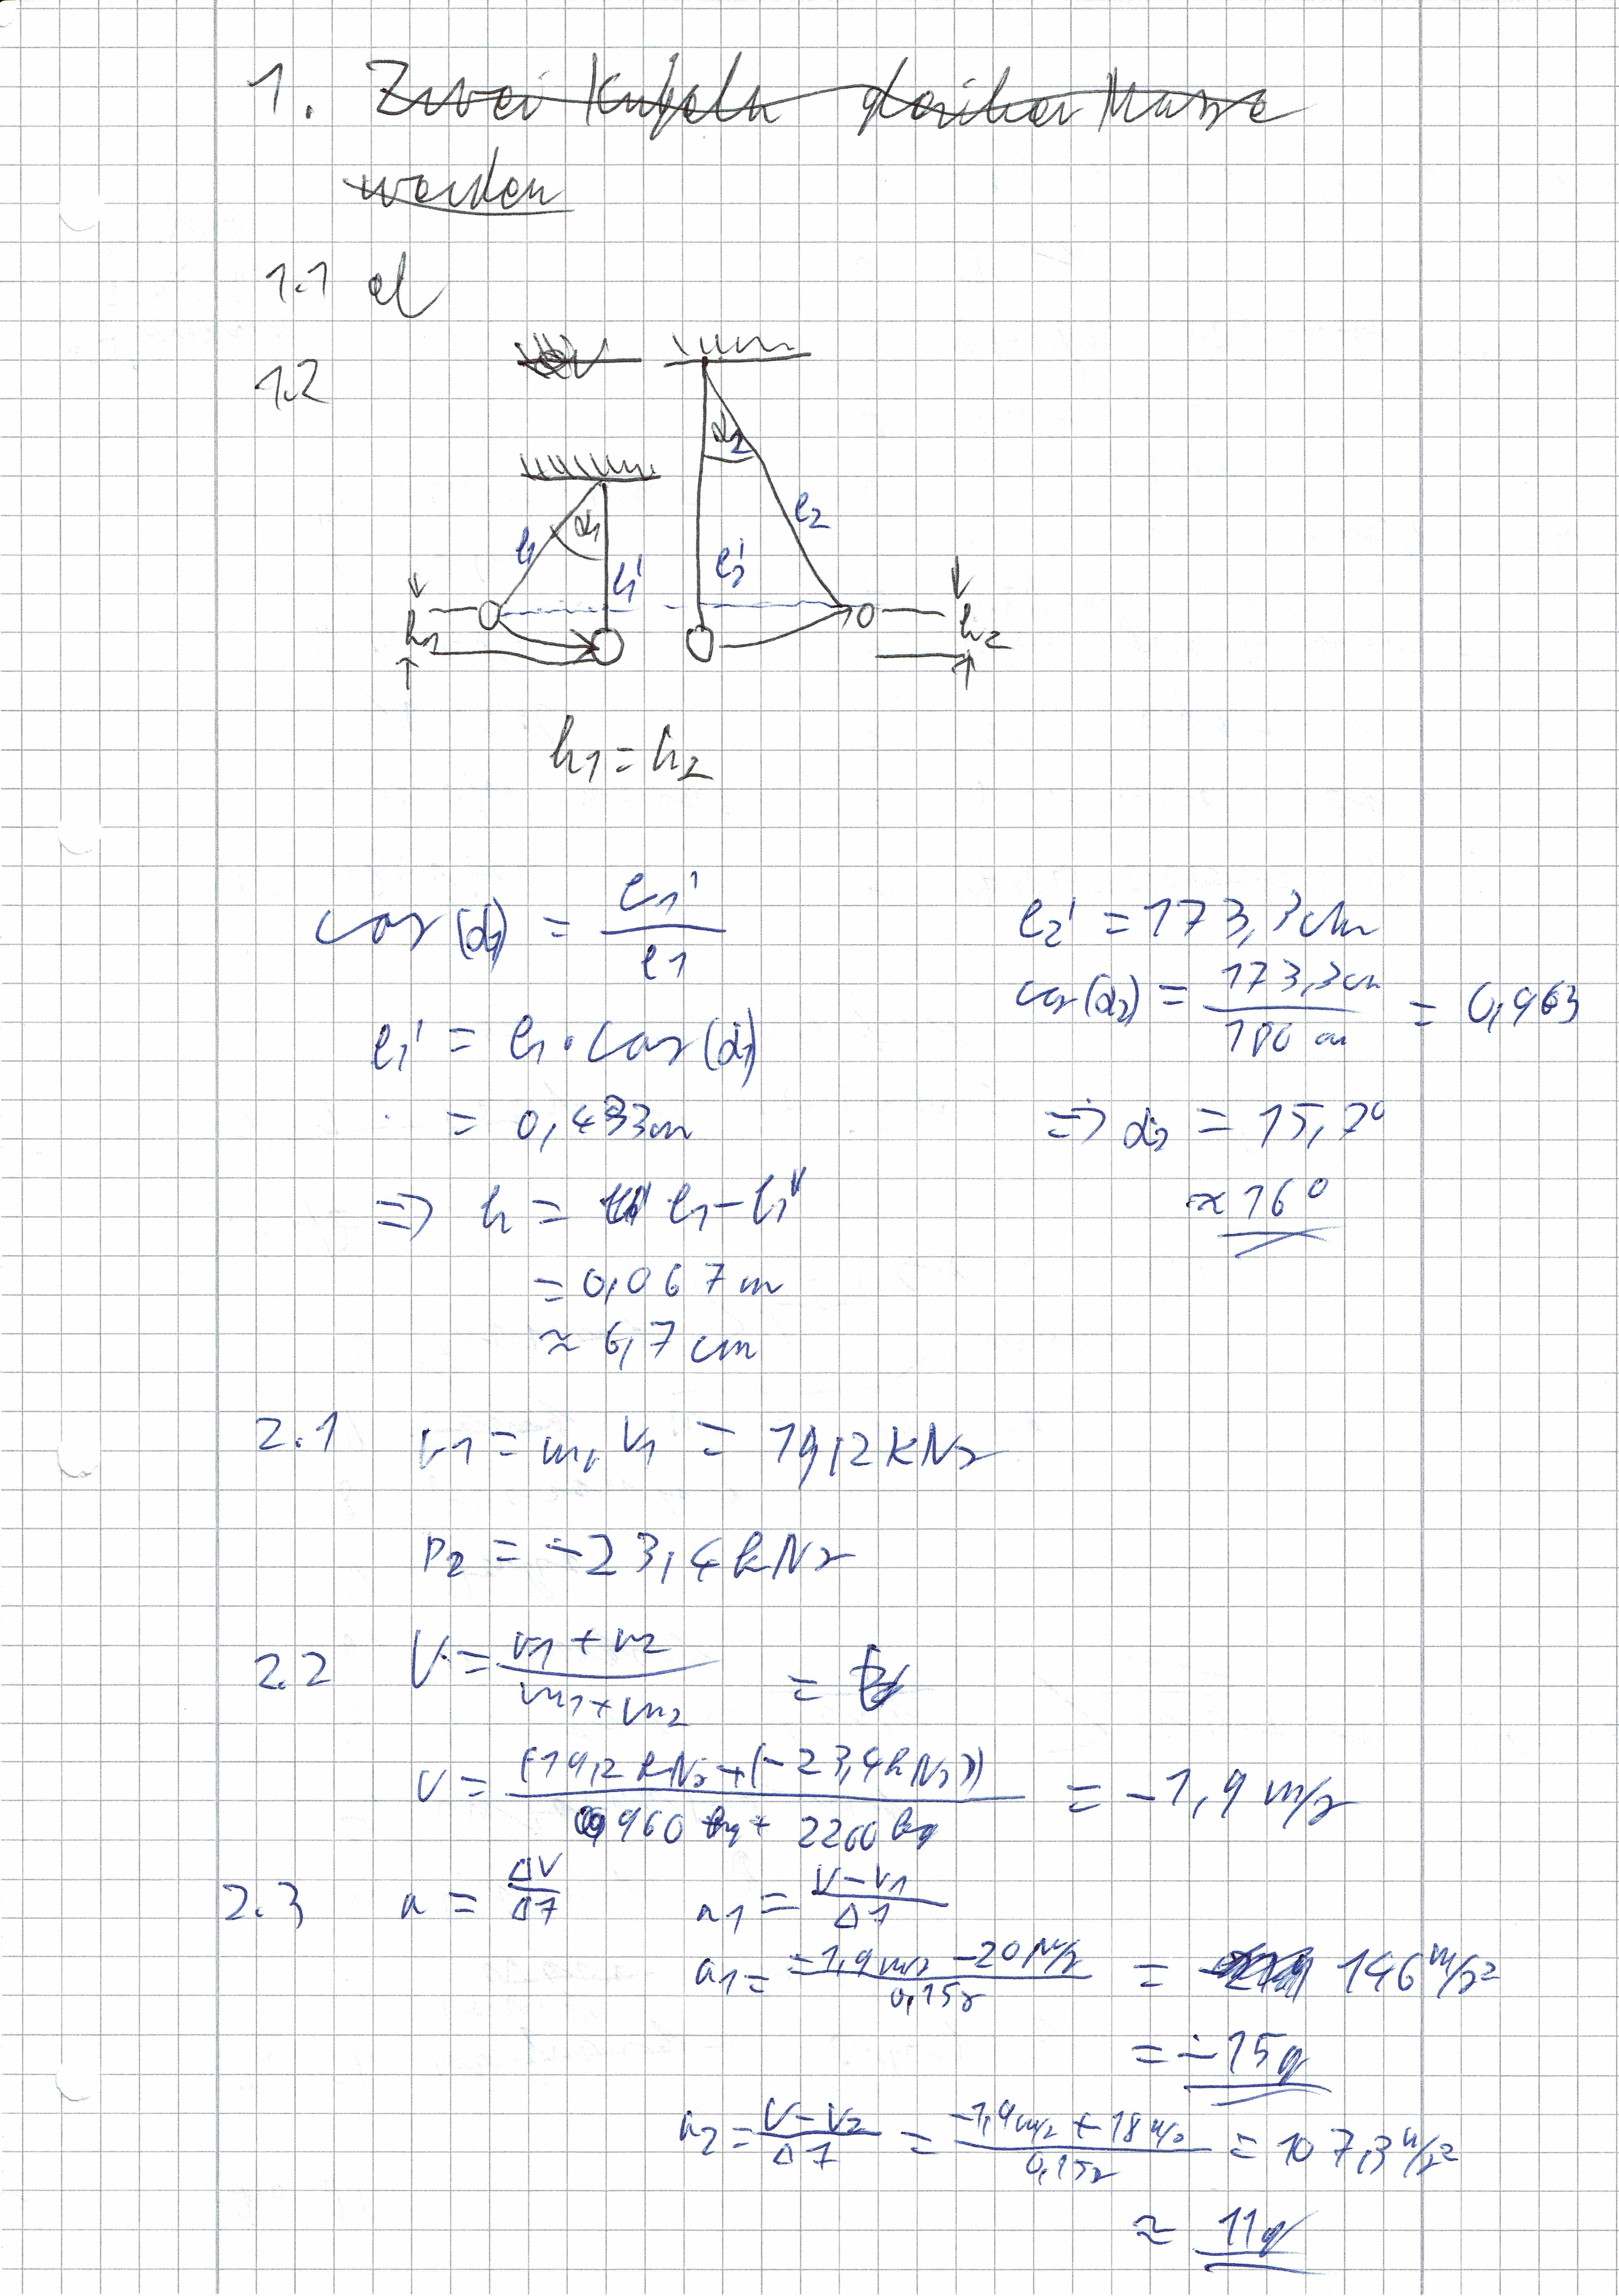 1. Zwei Kugeln gleicher Masse
werden
1.1 el
1.2
α1 α2
l1 l1' l2' l2
h1 h2
h1 = h2
cos(α1) = l1' / l1
l1' = l1 · cos(α1)
= 0,433m
=> h = l1 - l1'
= 0,067 m
≈ 6,7 cm
l2' = 173,3cm
cos(α2) = 173,3cm / 180 cm = 0,963
=> α2 = 15,7°
≈ 16°
2.1 p1 = m1 v1 = 19,2 kNs
p2 = -23,4 kNs
2.2 v = p1 + p2 / m1 + m2 =
v = (19,2 kNs + (-23,4 kNs)) / 960 kg + 2260 kg = -1,9 m/s
2.3 a = ΔV / Δt a1 = V - V1 / Δt
a1 = -1,9 m/s - 20 m/s / 0,15s = 146 m/s²
= -15g
a2 = V - V2 / Δt = -1,9 m/s + 18 m/s / 0,15s = 107,3 m/s²
≈ 11g